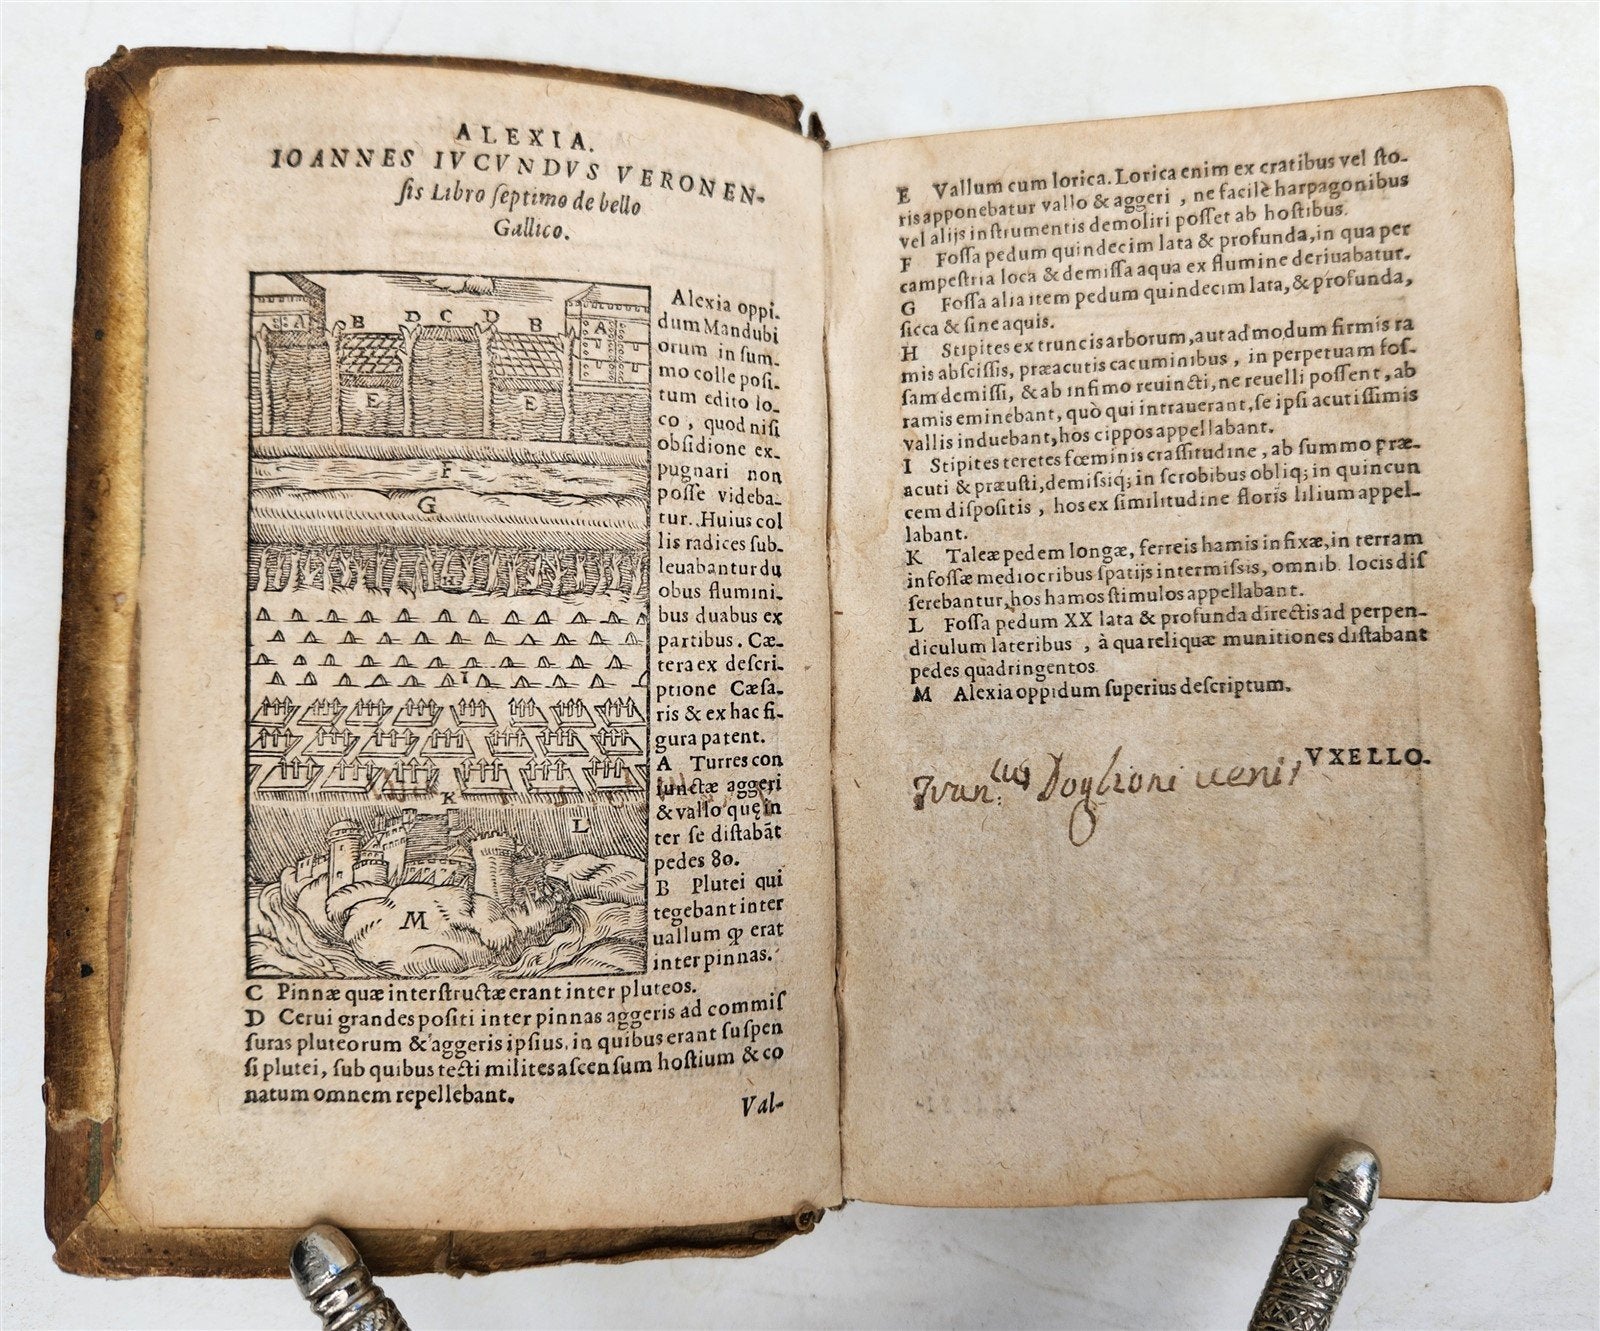 ALEXIA.
IOANNES IVCVNDVS VERONEN-
sis Libro septimo de bello
Gallico.
A B D C D B A
E E
F
G
H
I
K
L
M
Alexia oppi-
dum Mandubi
orum in sum-
mo colle posi-
tum edito lo-
co, quod nisi
obsidione ex-
pugnari non
posse videba-
tur. Huius col
lis radices sub-
leuabantur du
obus flumini-
bus duabus ex
partibus. Cæ-
tera ex descri-
ptione Cæsa-
ris & ex hac fi-
gura patent.
A Turres con
iunctæ aggeri
& vallo quę in
ter se distabãt
pedes 80.
B Plutei qui
tegebant inter
uallum ꝙ erat
inter pinnas.
C Pinnæ quæ interstructæ erant inter pluteos.
D Cerui grandes positi inter pinnas aggeris ad commis
suras pluteorum & aggeris ipsius, in quibus erant suspen
si plutei, sub quibus tecti milites ascensum hostium & co
natum omnem repellebant.
Val-
E Vallum cum lorica. Lorica enim ex cratibus vel sto-
ris apponebatur vallo & aggeri, ne facilè harpagonibus
vel alijs instrumentis demoliri posset ab hostibus.
F Fossa pedum quindecim lata & profunda, in qua per
campestria loca & demissa aqua ex flumine deriuabatur.
G Fossa alia item pedum quindecim lata, & profunda,
sicca & sine aquis.
H Stipites ex truncis arborum, aut admodum firmis ra
mis abscissis, præacutis cacuminibus, in perpetuam fos-
sam demissi, & ab infimo reuincti, ne reuelli possent, ab
ramis eminebant, quò qui intrauerant, se ipsi acutissimis
vallis induebant, hos cippos appellabant.
I Stipites teretes fœminis crassitudine, ab summo præ-
acuti & præusti, demissiq; in scrobibus obliq; in quincun
cem dispositis, hos ex similitudine floris lilium appel-
labant.
K Taleæ pedem longæ, ferreis hamis infixæ, in terram
infossæ mediocribus spatijs intermissis, omnib. locis dis
serebantur, hos hamos stimulos appellabant.
L Fossa pedum XX lata & profunda directis ad perpen-
diculum lateribus, à qua reliquæ munitiones distabant
pedes quadringentos
M Alexia oppidum superius descriptum.
VXELLO-
Doglioni